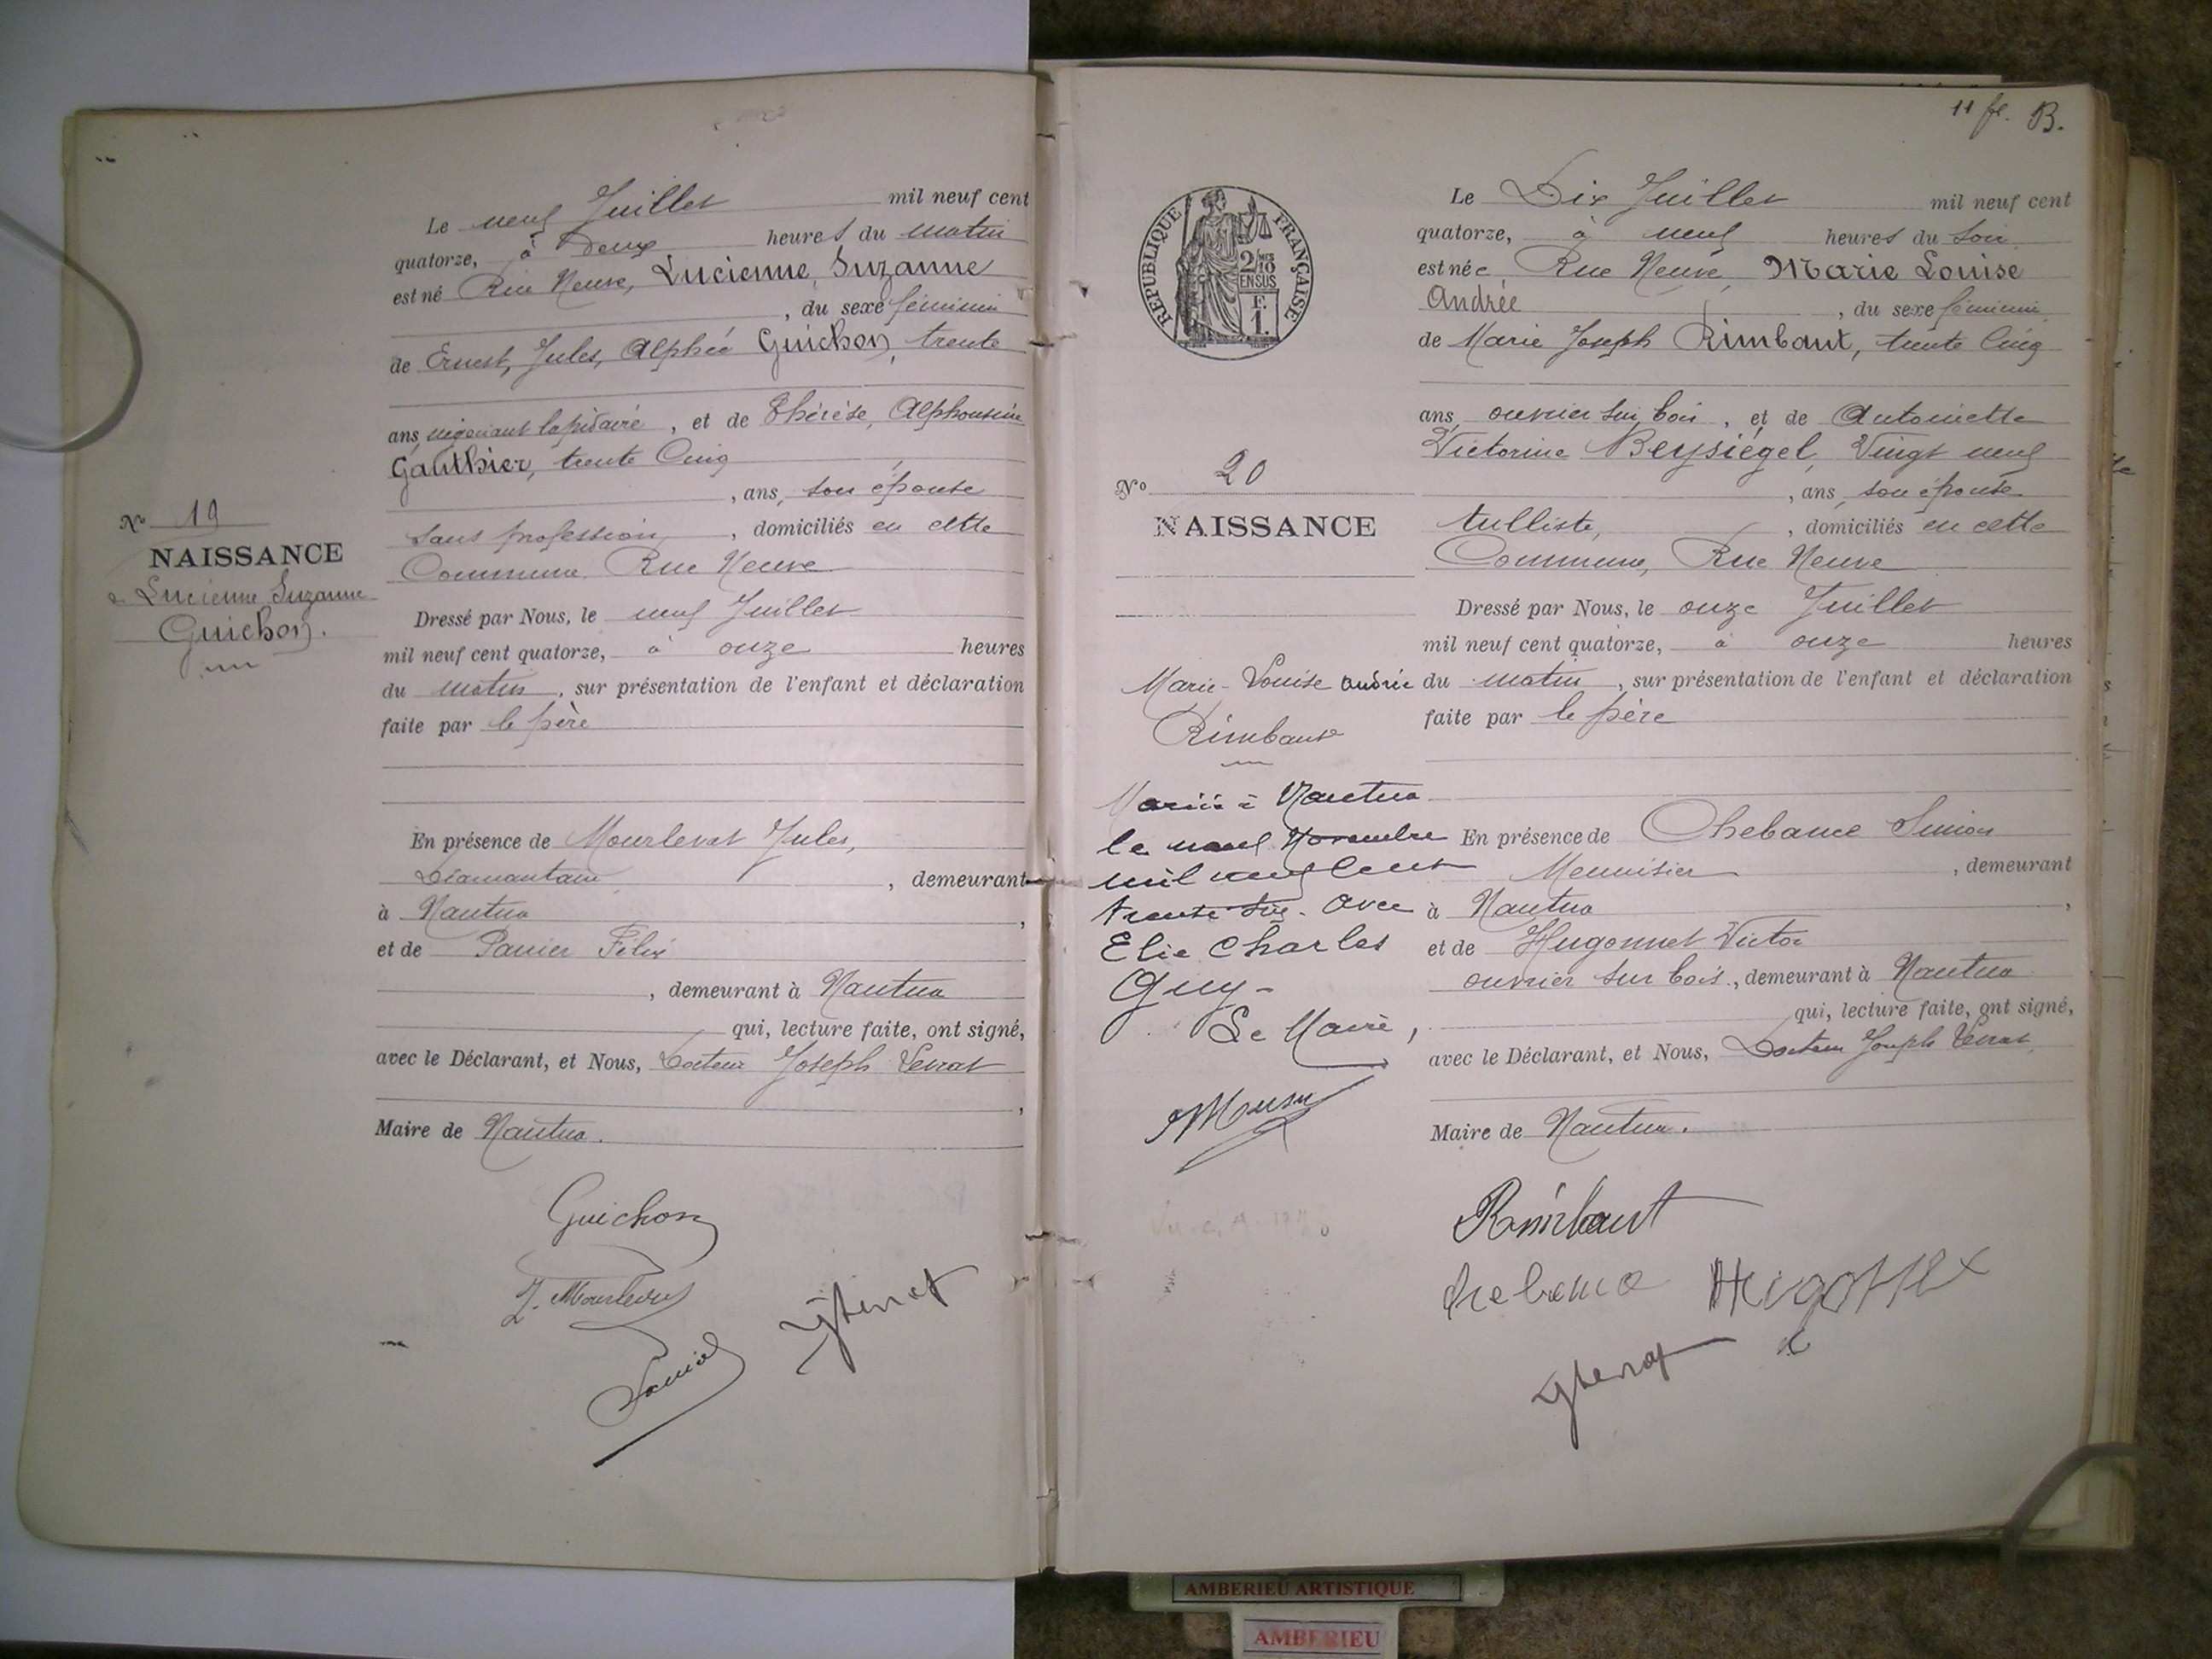 Le neuf Juillet mil neuf cent
quatorze, à Deux heures du matin
est né Rue Neuve, Lucienne, Suzanne
, du sexe féminin
de Ernest, Jules, Alphée Guichon, trente
ans, négociant lapidaire, et de Thérèse, Alphonsine
Gauthier, trente Cinq
, ans, son épouse
sans profession, domiciliés en cette
Commune, Rue Neuve
Dressé par Nous, le neuf Juillet
mil neuf cent quatorze, à onze heures
du matin, sur présentation de l'enfant et déclaration
faite par le père
En présence de Mourlevat Jules,
Diamantaire, demeurant
à Nantua,
et de Panier Félix
, demeurant à Nantua
qui, lecture faite, ont signé,
avec le Déclarant, et Nous, Docteur Joseph Verrat
,
Maire de Nantua.
Guichon
J. Mourlevat
Panier
No 19
NAISSANCE
de Lucienne Suzanne
Guichon.
11 fe. B.
RÉPUBLIQUE FRANÇAISE
2/10 MES
EN SUS
F.
1.
Le Dix Juillet mil neuf cent
quatorze, à neuf heures du soir
est née Rue Neuve, Marie Louise
Andrée, du sexe féminin
de Marie Joseph Rimbaut, trente Cinq
ans, ouvrier sur bois, et de Antoinette
Victorine Beysiégel, Vingt neuf
, ans, son épouse
tulliste, domiciliés en cette
Commune, Rue Neuve
Dressé par Nous, le onze Juillet
mil neuf cent quatorze, à onze heures
du matin, sur présentation de l'enfant et déclaration
faite par le père
En présence de Chebance Simon
Menuisier, demeurant
à Nantua,
et de Hugonnet Victor
ouvrier sur bois, demeurant à Nantua
qui, lecture faite, ont signé,
avec le Déclarant, et Nous, Docteur Joseph Verrat
Maire de Nantua.
Rimbaut
No 20
NAISSANCE
Marie-Louise Andrée
Rimbaut
Mariée à Nantua
le neuf Novembre
mil neuf cent
trente six. avec
Elie Charles
Guy-
Le Maire,
AMBERIEU ARTISTIQUE
AMBERIEU